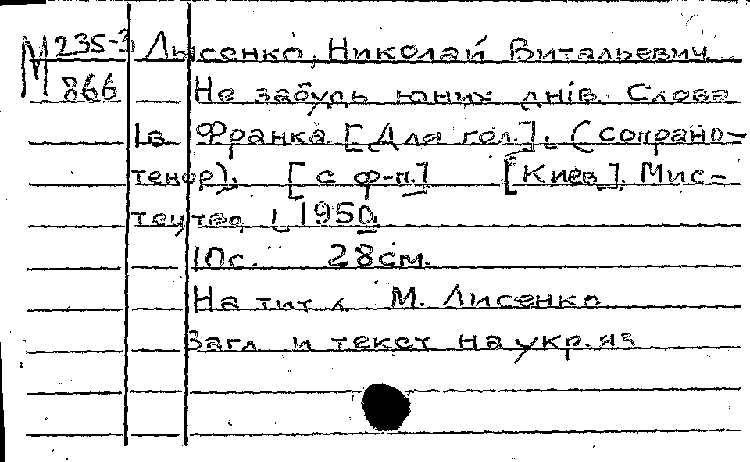 М 235-3 Лысенко, Николай Витальевич
866 Не забудь юних днів. Слова
Ів. Франка [Для гол.]. (сопрано-
тенор). [с ф-п.] [Киев], Мис-
тецтво, [1950].
10с. 28см.
На тит. л. М. Лисенко
Загл. и текст на укр. яз